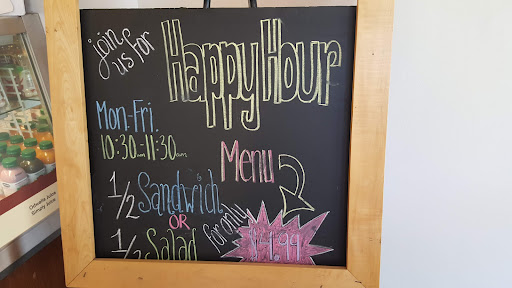 join us for
Happy Hour
Mon-Fri.
10:30am-11:30am
Menu
1/2 Sandwich
OR
1/2 Salad
for only
$4.99
Odwalla Juice
Simply Juice